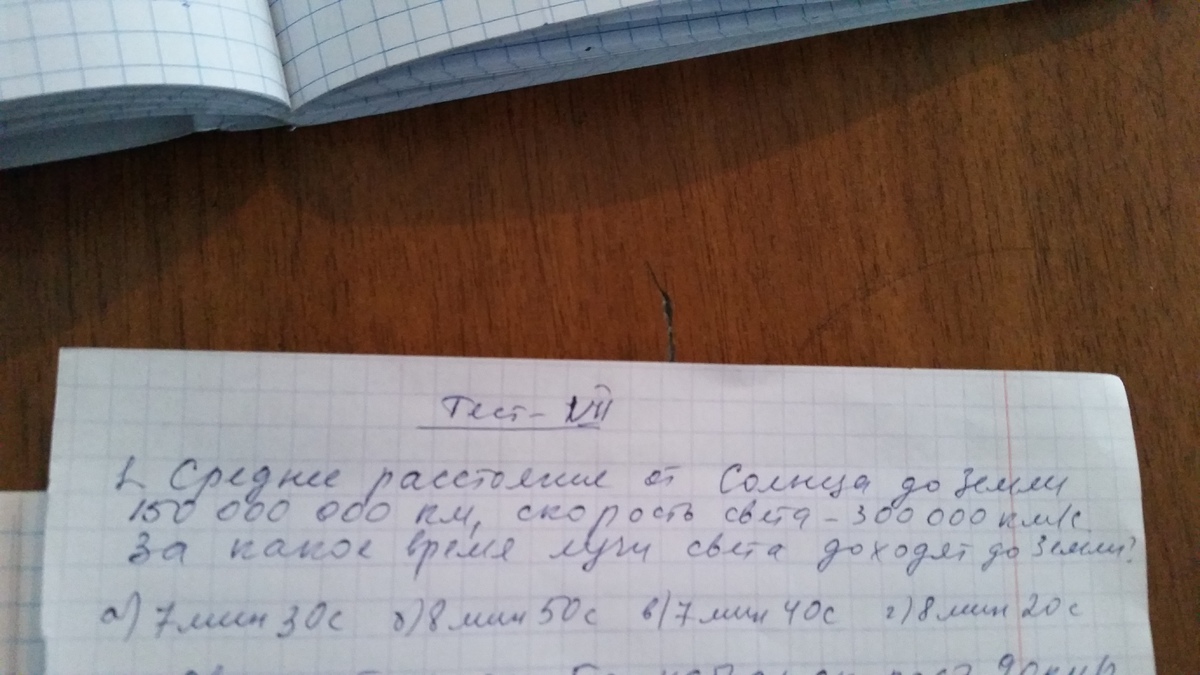 Тест - VII
1. Среднее расстояние от Солнца до Земли
150 000 000 км, скорость света - 300 000 км/с.
За какое время лучи света доходят до Земли?
а) 7 мин 30с б) 8 мин 50с в) 7 мин 40с г) 8 мин 20с